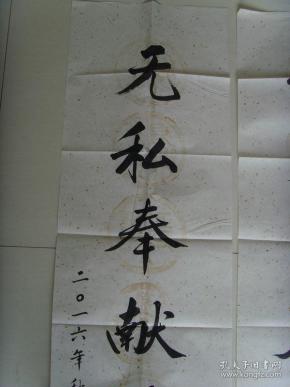 无私奉献
二〇一六年
孔夫子旧书网